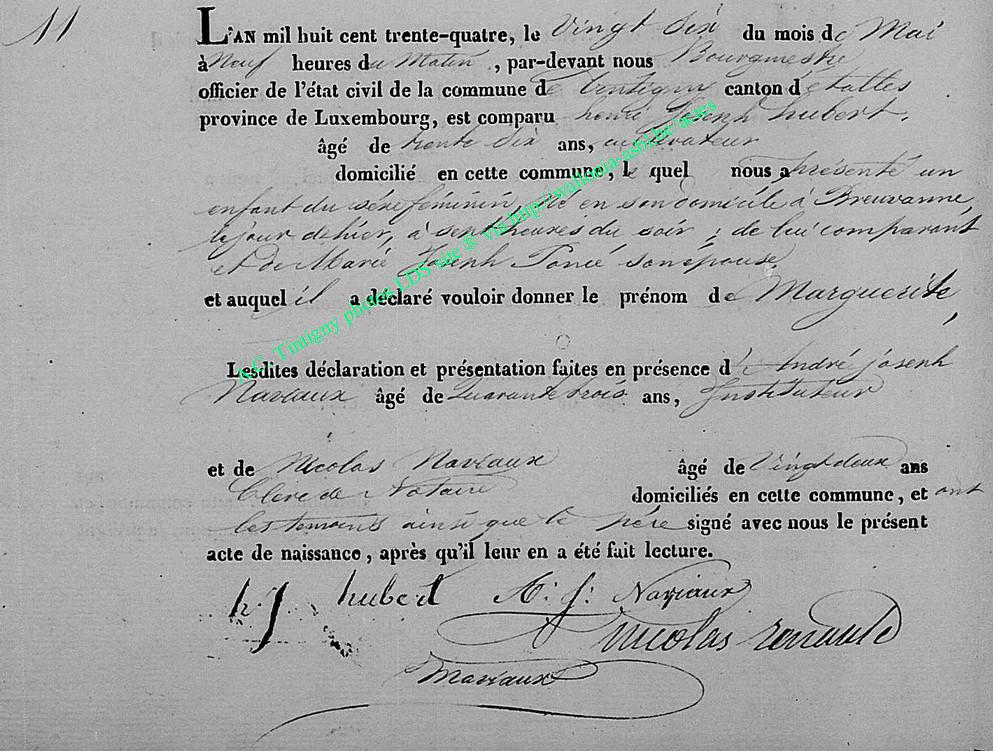 11
L'AN mil huit cent trente-quatre, le vingt six du mois de Mai
à Neuf heures du Matin, par-devant nous Bourgmestre
officier de l'état civil de la commune de tintigny canton d'étalles
province de Luxembourg, est comparu henri Joseph hubert,
âgé de trente six ans, cultivateur
domicilié en cette commune, le quel nous a présenté un
enfant du sèxe féminin, né en son domicile à Breuvanne,
le jour de hier, à sept heures du soir ; de lui comparant
et de Marie Joseph Poncé son épouse
et auquel il a déclaré vouloir donner le prénom de Marguerite,
Lesdites déclaration et présentation faites en présence d'André joseph
Naviaux âgé de Quarante trois ans, Instituteur
et de Nicolas Naviaux âgé de Vingt deux ans
Clerc de Notaire domiciliés en cette commune, et ont
les temoins ainsi que le père signé avec nous le présent
acte de naissance, après qu'il leur en a été fait lecture.
h. J hubert A: J: Naviaux
nicolas
Naviaux
A.C. Tintigny photos LDS site & via http://wallonia-asbl.be/actes